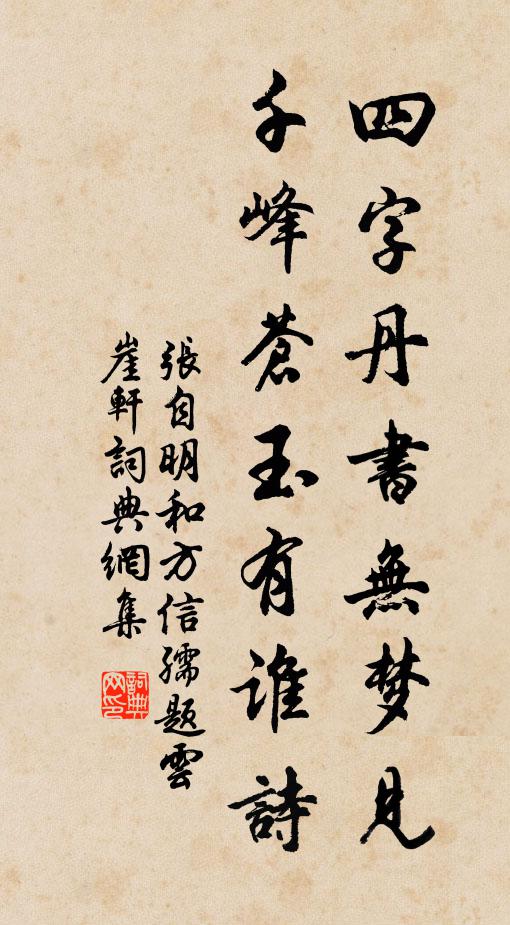 四字丹書無梦見
千峰蒼玉有誰詩
張自明和方信孺題雲
崖軒詞典網集
詞典网印